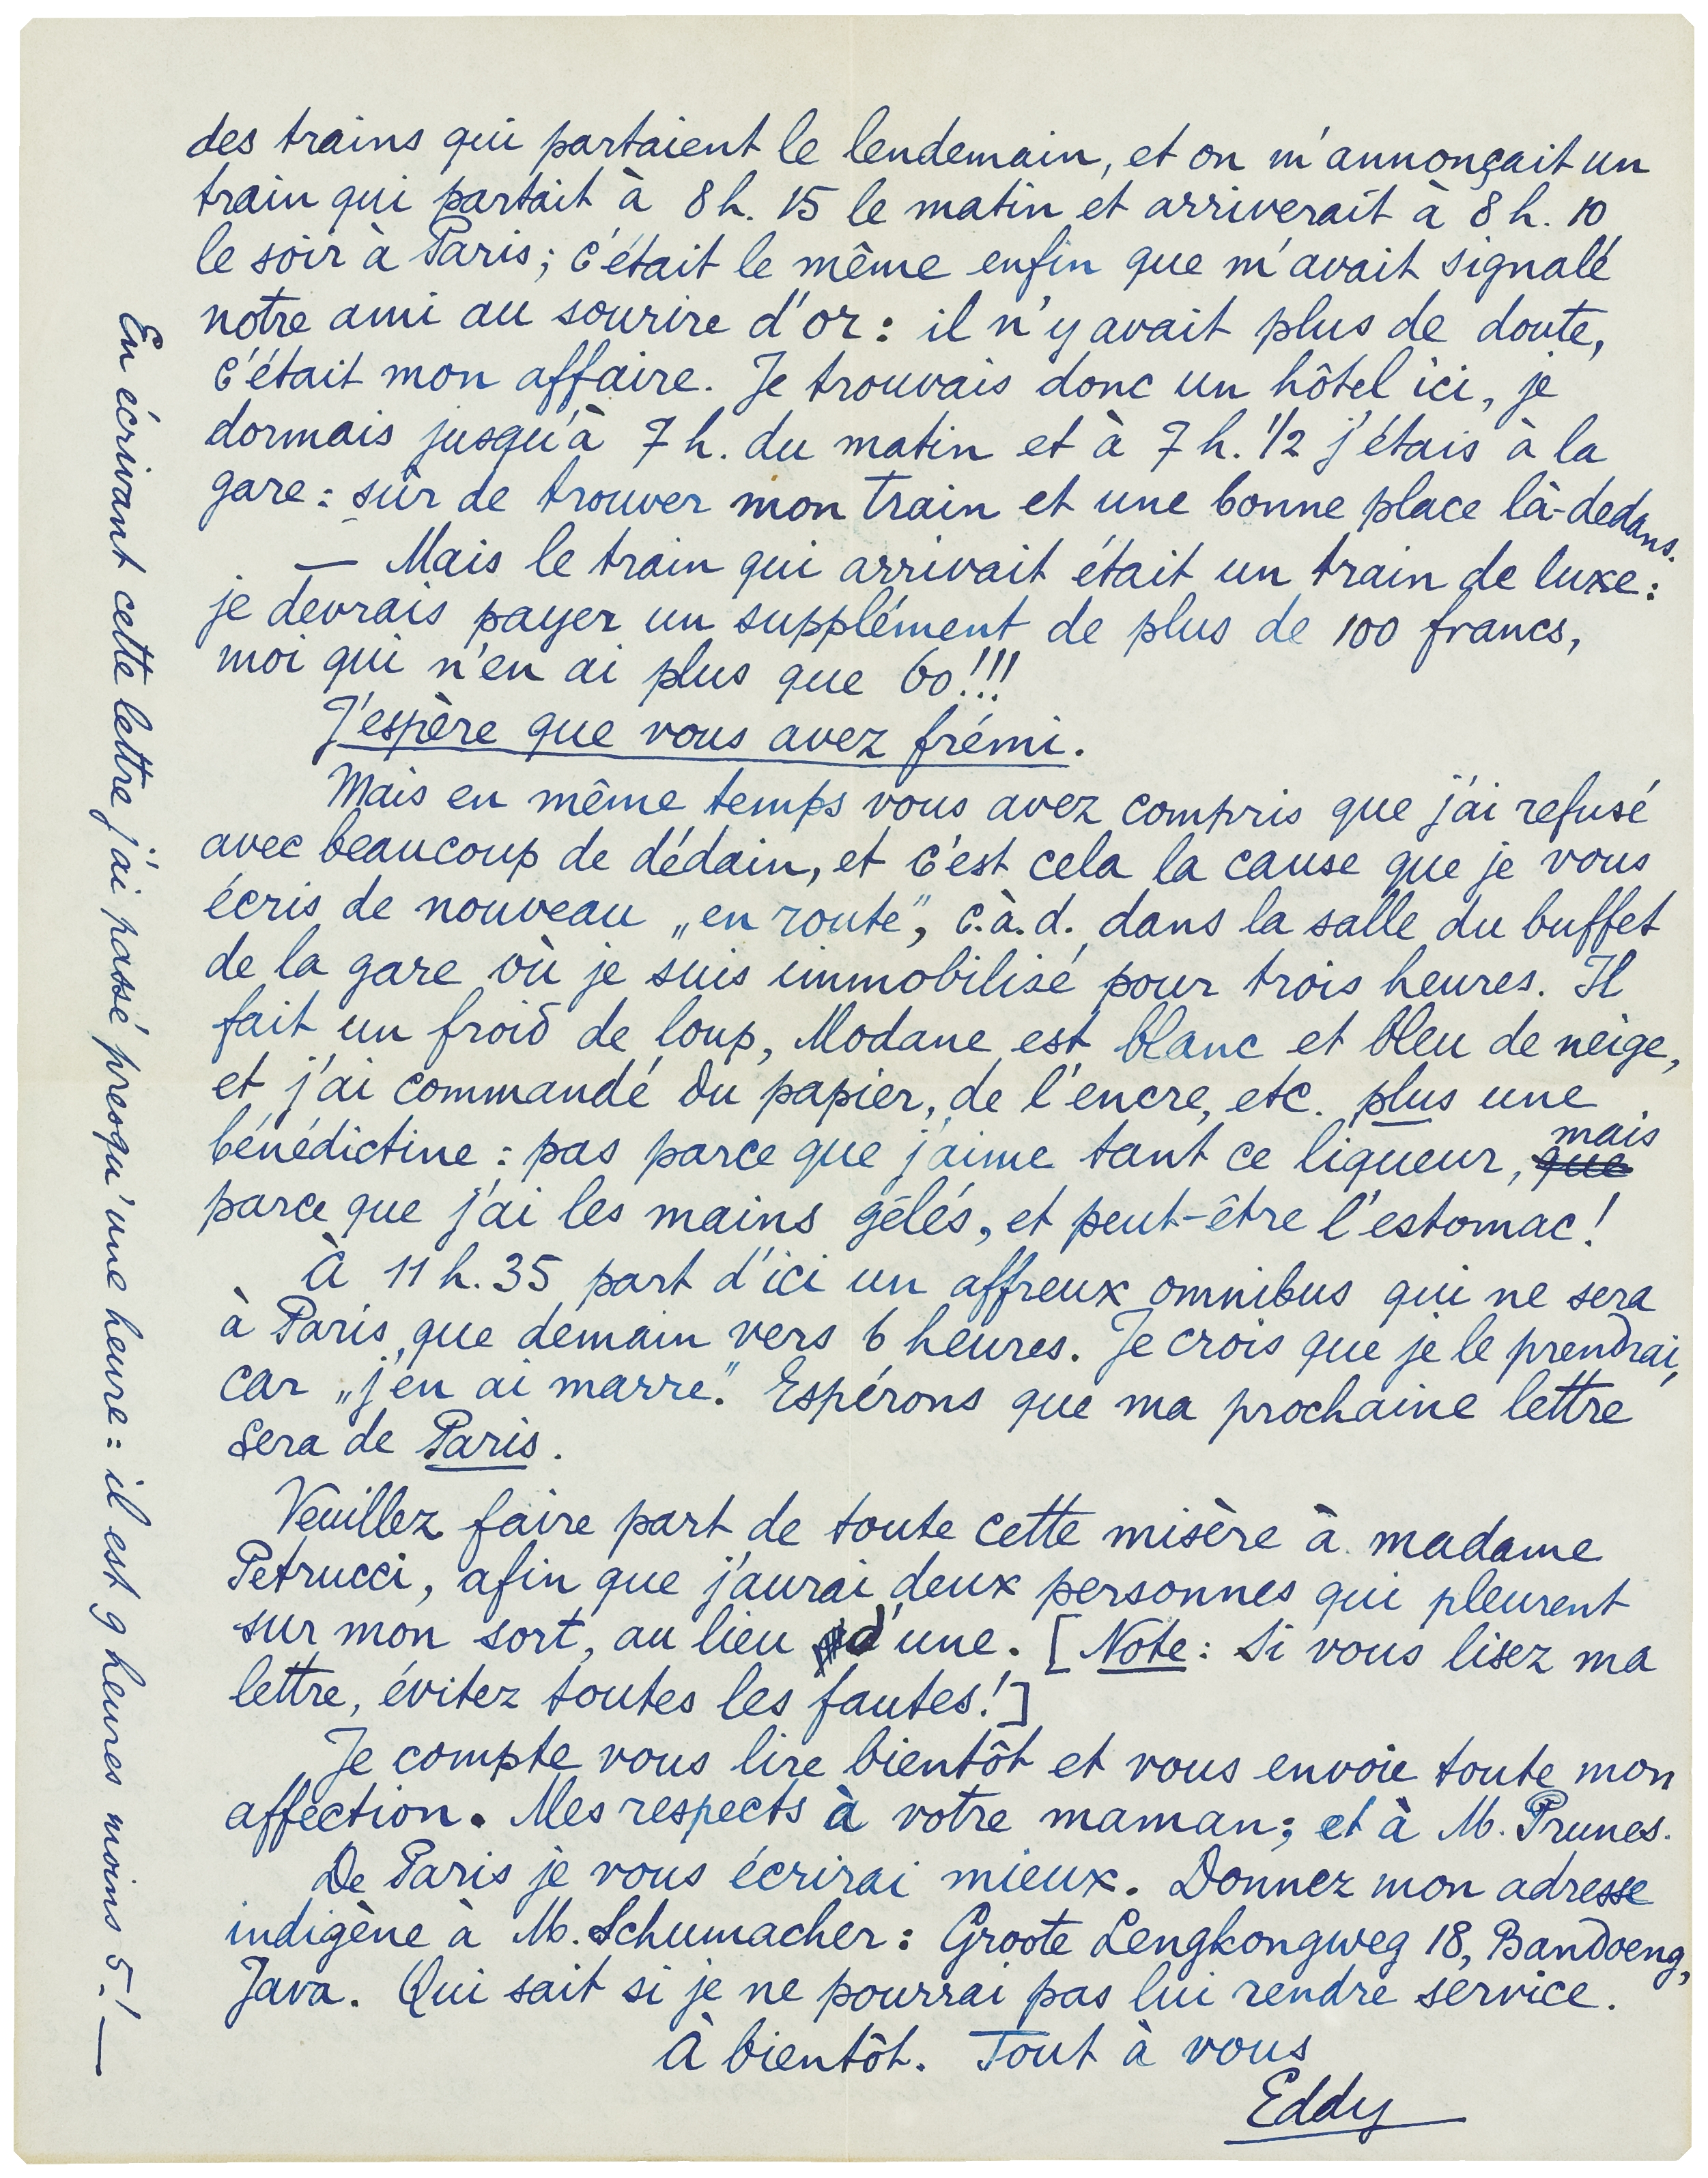 des trains qui partaient le lendemain, et on m'annonçait un
train qui partait à 8 h. 15 le matin et arriverait à 8 h. 10
le soir à Paris; c'était le même enfin que m'avait signalé
notre ami au sourire d'or : il n'y avait plus de doute,
c'était mon affaire. Je trouvais donc un hôtel ici, je
dormais jusqu'à 7 h. du matin et à 7 h. 1/2 j'étais à la
gare : sûr de trouver mon train et une bonne place là-dedans.
— Mais le train qui arrivait était un train de luxe :
je devrais payer un supplément de plus de 100 francs,
moi qui n'en ai plus que 60!!!
J'espère que vous avez frémi.
Mais en même temps vous avez compris que j'ai refusé
avec beaucoup de dédain, et c'est cela la cause que je vous
écris de nouveau „en route”, c.à.d. dans la salle du buffet
de la gare où je suis immobilisé pour trois heures. Il
fait un froid de loup, Modane est blanc et bleu de neige,
et j'ai commandé du papier, de l'encre, etc. plus une
bénédictine : pas parce que j'aime tant ce liqueur, que mais
parce que j'ai les mains gélés, et peut-être l'estomac!
À 11 h. 35 part d'ici un affreux omnibus qui ne sera
à Paris que demain vers 6 heures. Je crois que je le prendrai,
car „j'en ai marre.” Espérons que ma prochaine lettre
sera de Paris.
Veuillez faire part de toute cette misère à madame
Petrucci, afin que j'aurai deux personnes qui pleurent
sur mon sort, au lieu d'une. [Note : Si vous lisez ma
lettre, évitez toutes les fautes!]
Je compte vous lire bientôt et vous envoie toute mon
affection. Mes respects à votre maman; et à M. Prunes.
De Paris je vous écrirai mieux. Donnez mon adresse
indigène à M. Schumacher : Groote Lengkongweg 18, Bandoeng,
Java. Qui sait si je ne pourrai pas lui rendre service.
À bientôt. Tout à vous
Eddy
En écrivant cette lettre j'ai passé presqu'une heure : il est 9 heures moins 5! —